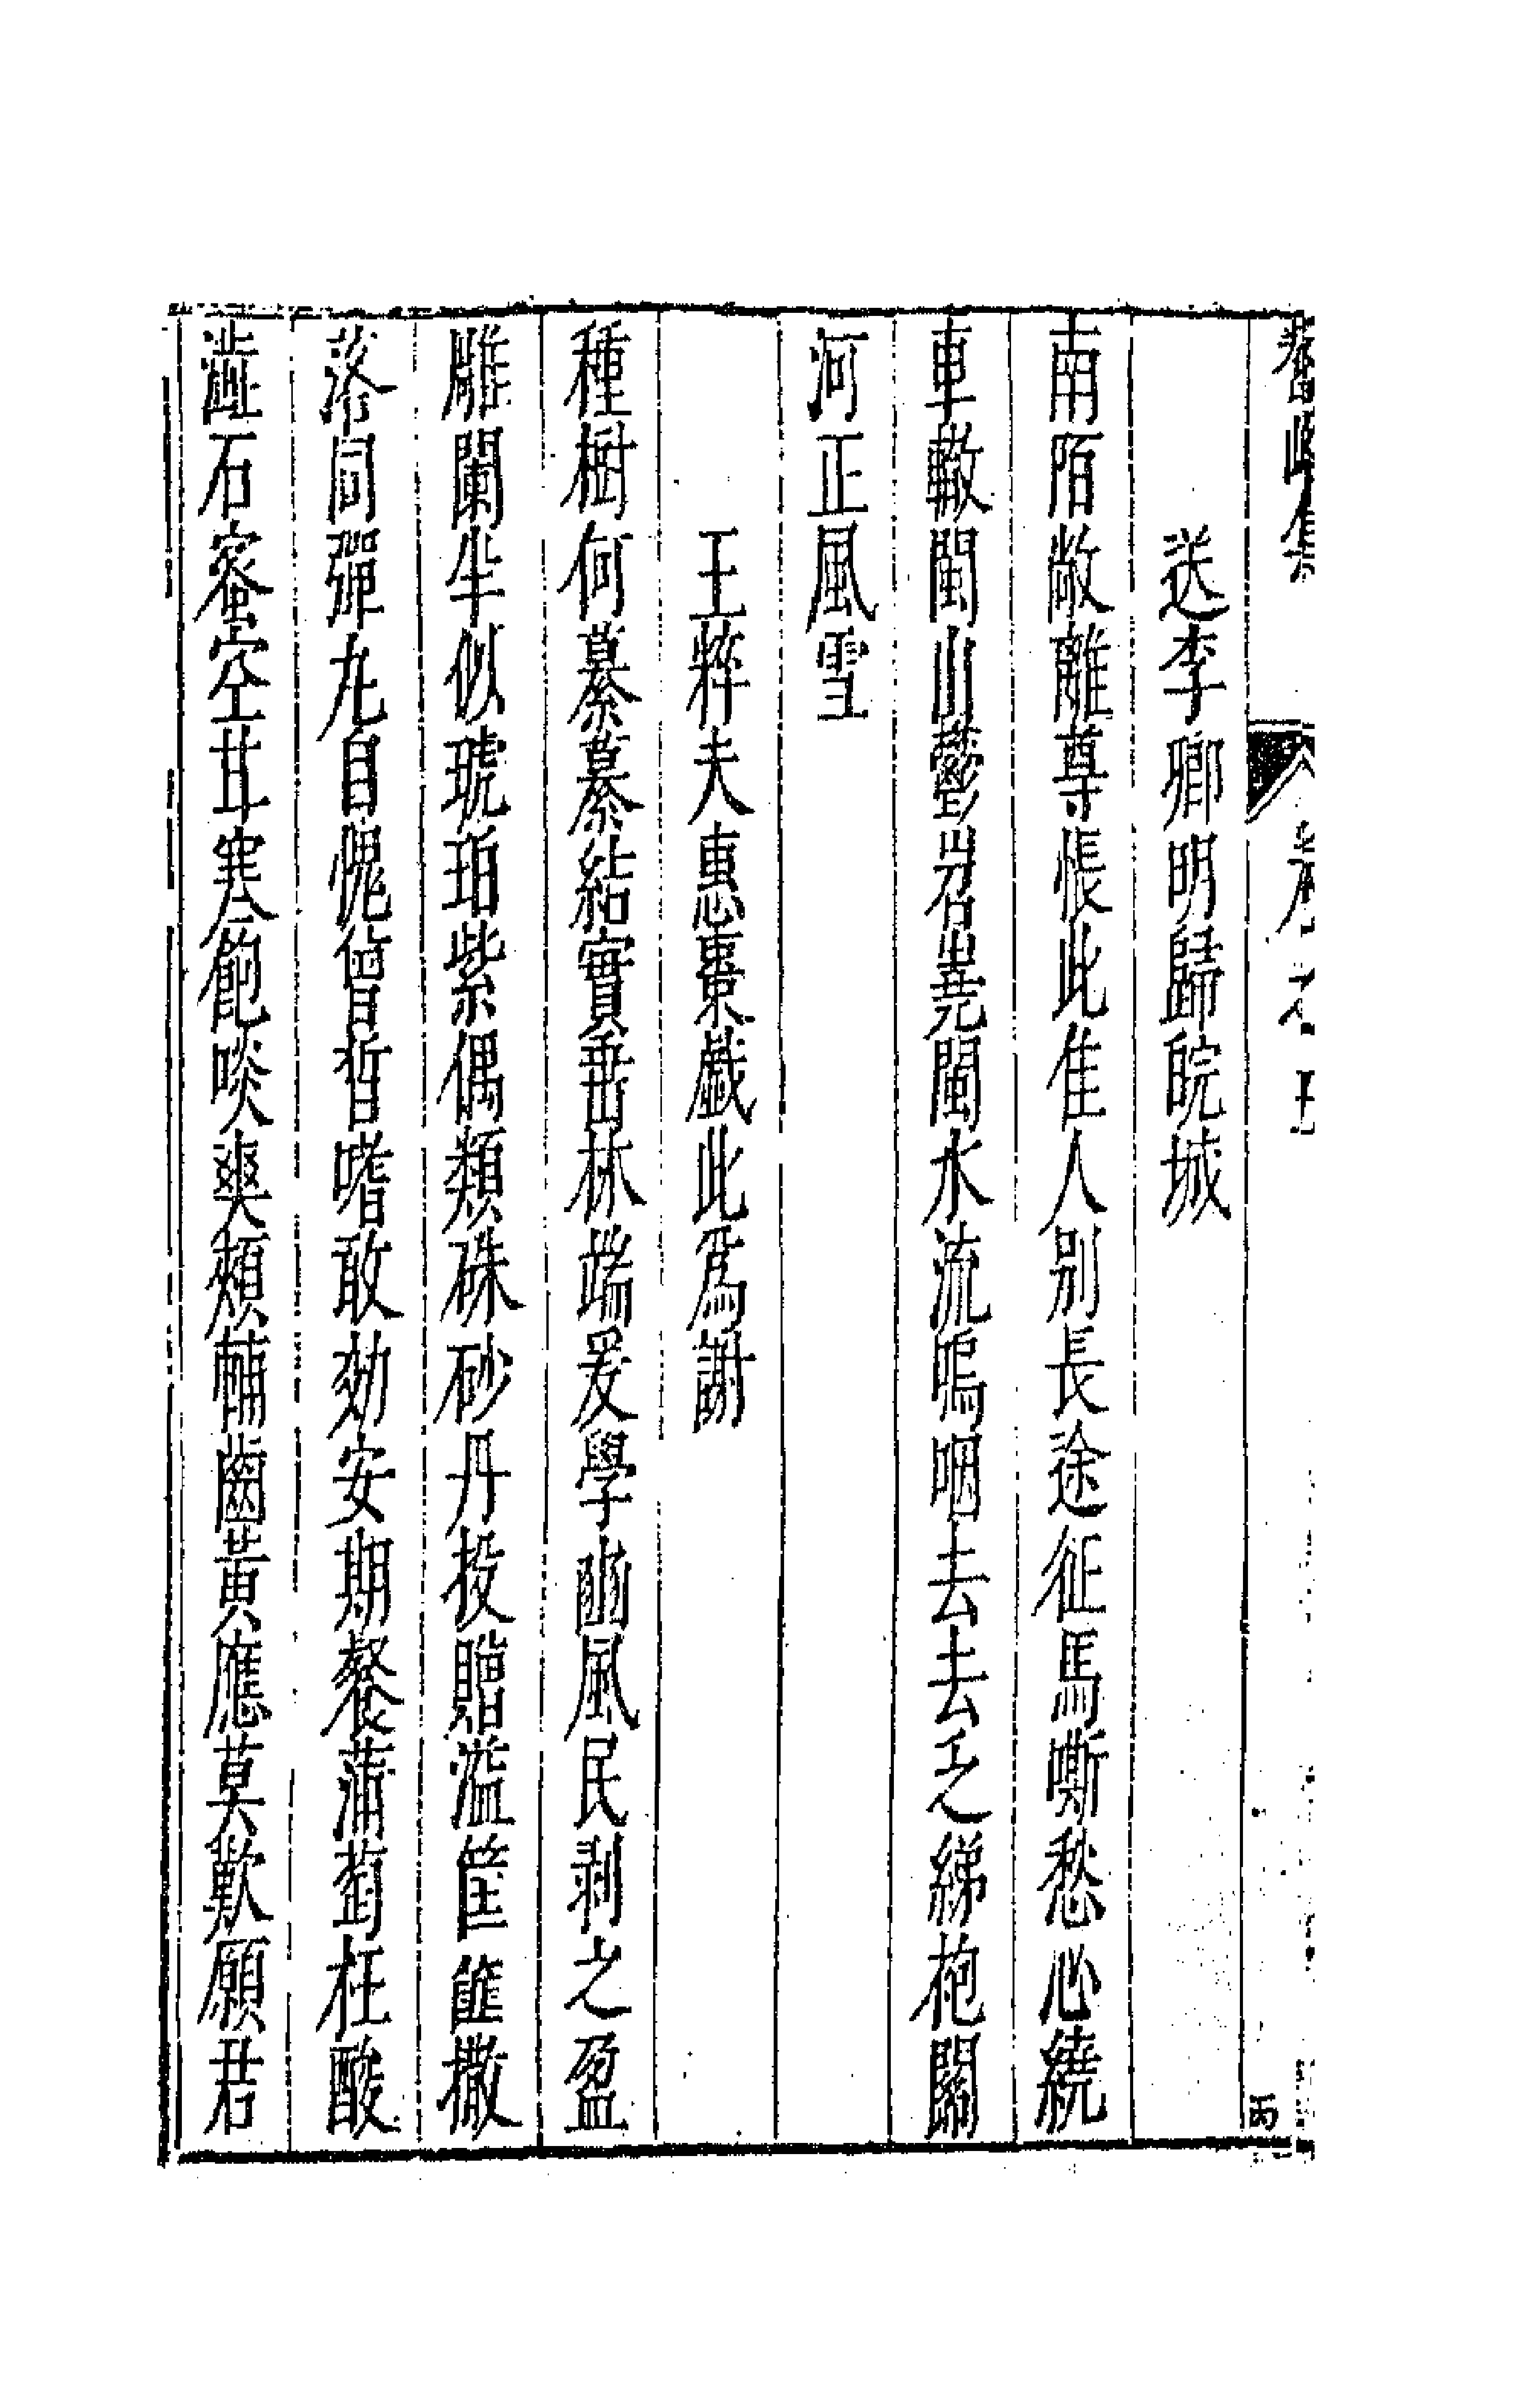 送李卿明歸皖城
南陌敞離尊悵此隹人別長途征馬嘶愁心繞
車轍閩山鬱岧嶤閩水流嗚咽去去乏綈袍關
河正風雪
王粹夫惠棗戲此爲謝
種樹何纂纂結實垂林端爰學豳風民剥之盈
雕闌半似琥珀紫偶類硃砂丹投贈溢筐篚撒
落同彈丸自愧曾晳嗜敢効安期餐蒲萄枉酸
澁石蜜空甘寒飽啖爽頰輔齒黃應莫歎願君